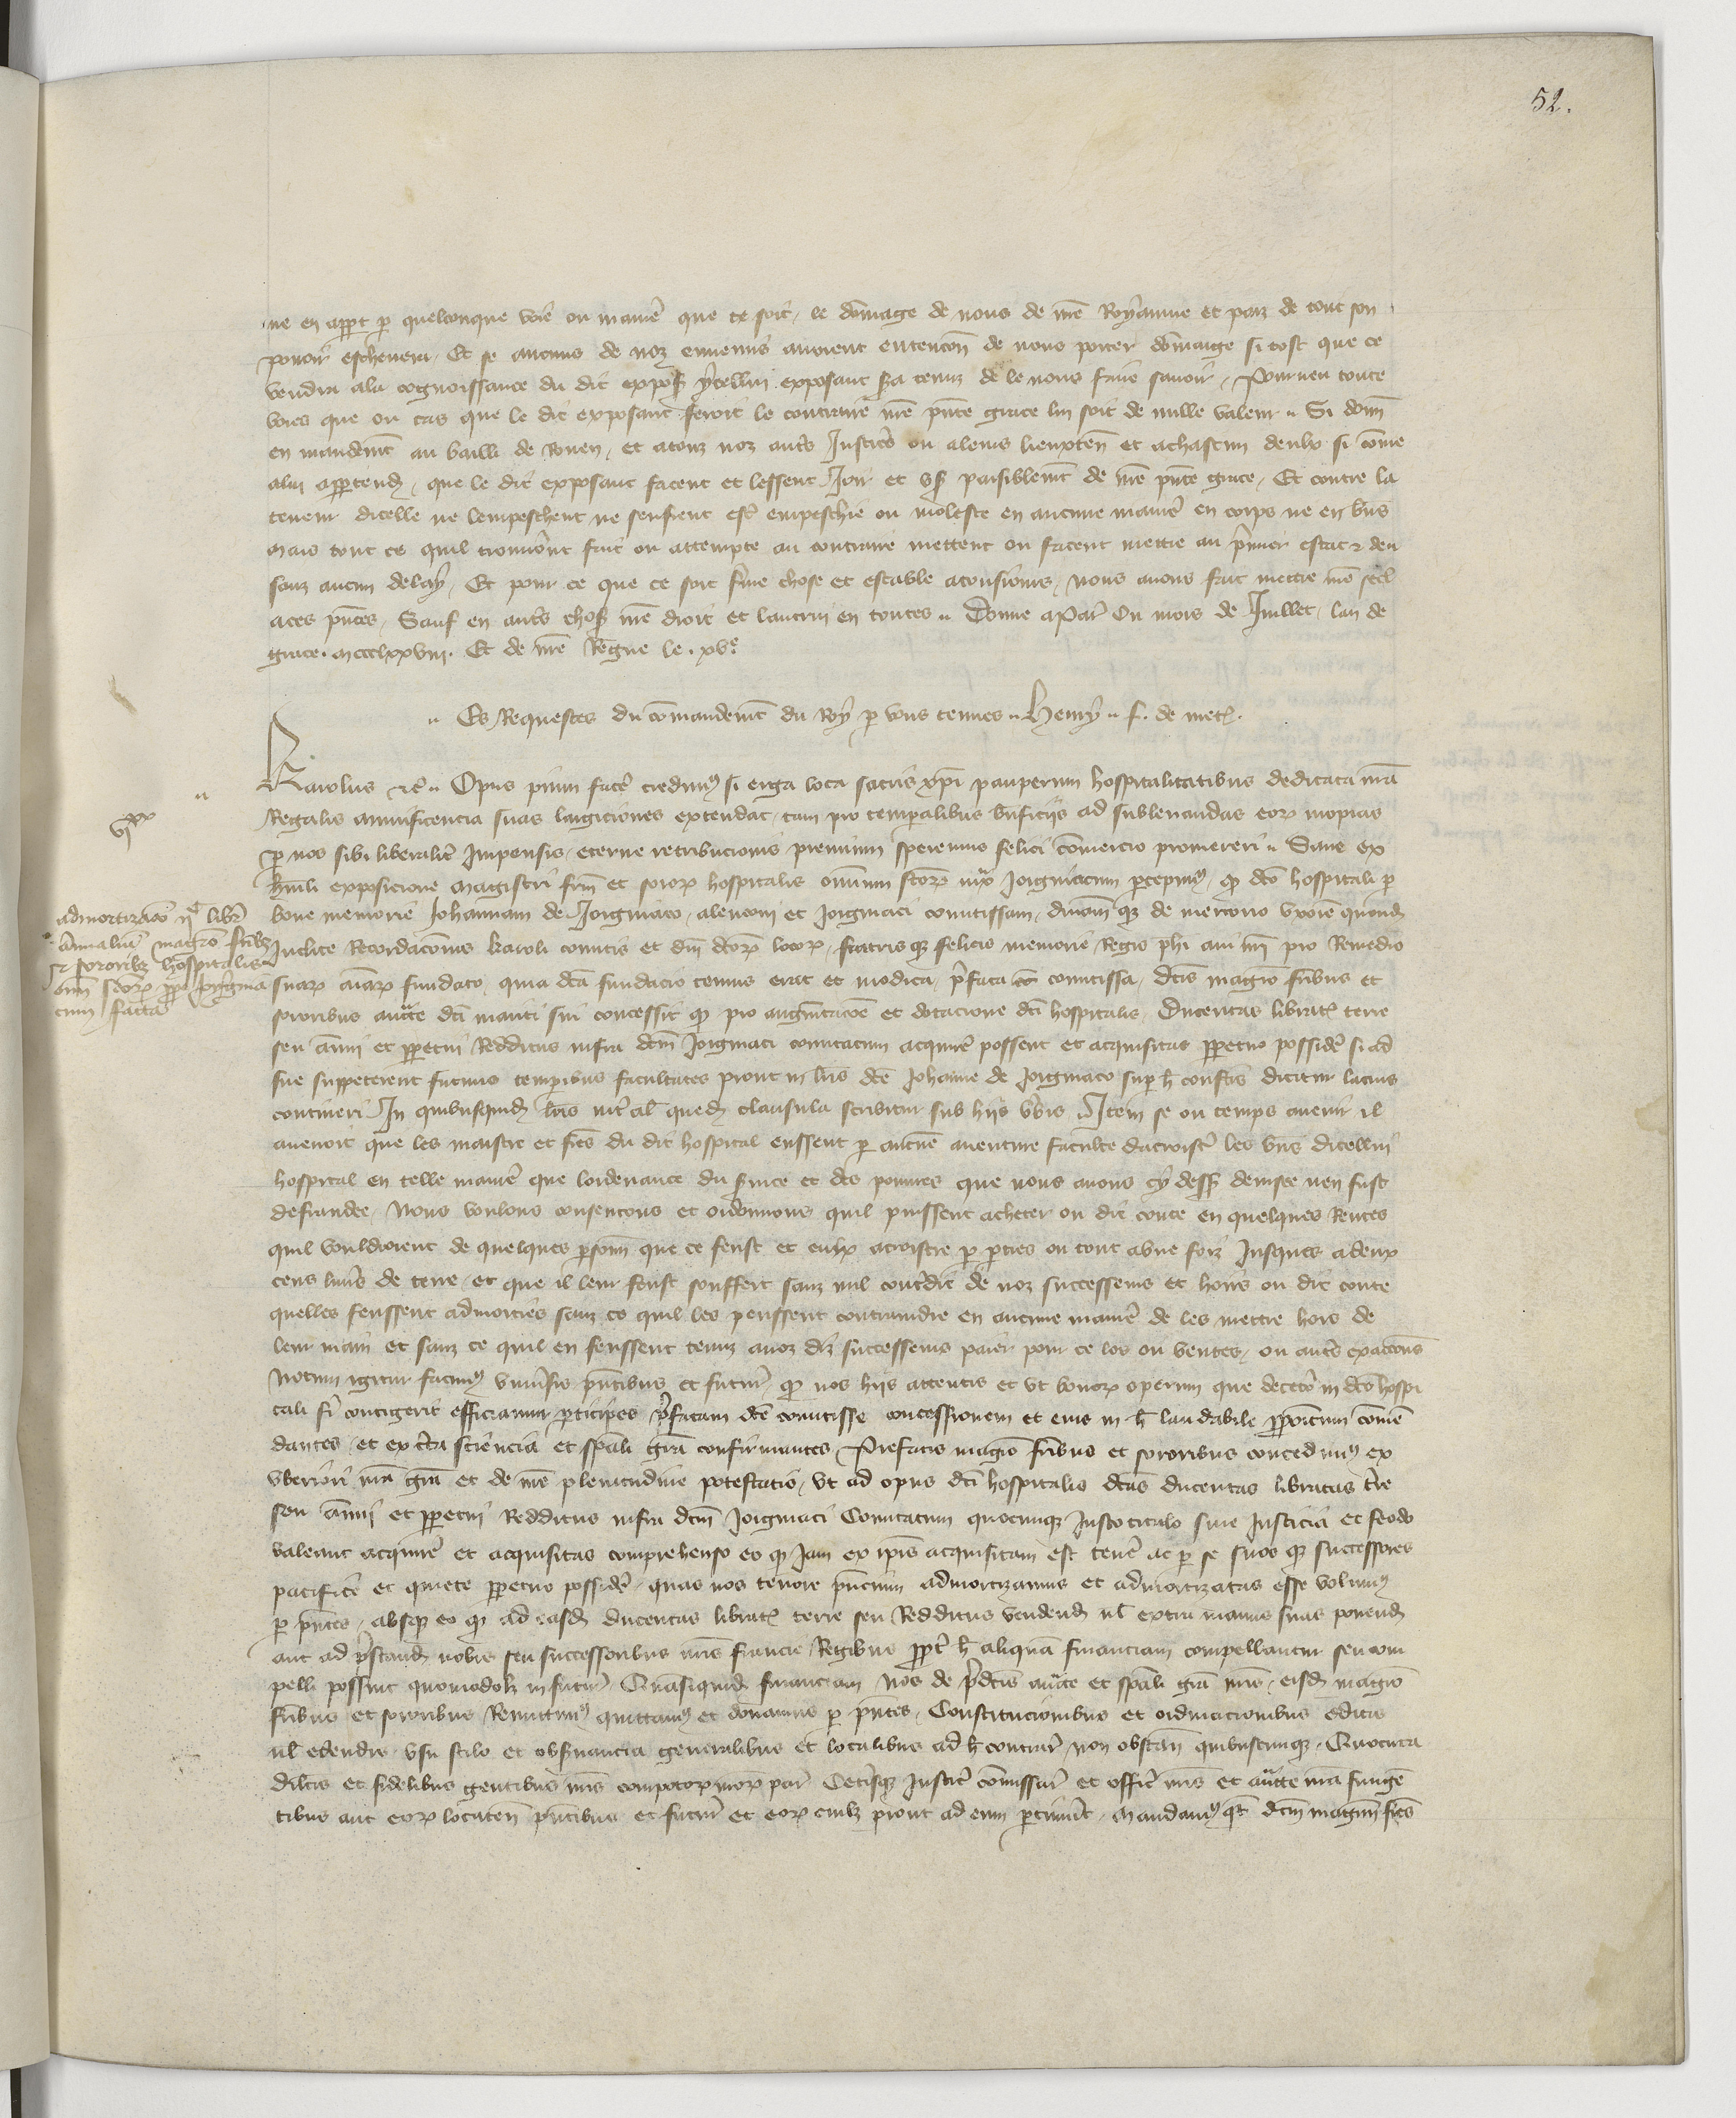 52.
ne en appt p quelconque voie ou manie que ce soit, le domage de nous de nre Royaume et paiz de tout son
pouoir eschevera, Et se aucuns de noz ennemis avoient entencon de nous porter domaige si tost que ce
vendra ala cognoissance du dit expos ycellui exposant sera tenuz de le nous faire savoir, Pourveu toute
voies que ou cas que le dit exposant feroit le contraire nre pnte grace lui soit de nulle valeur. Si donn
en mandemt au bailli de Rouen, et atouz noz autres Justiciers ou aleurs lieuxten et achascun deulx si come
alui appartend, que le dit exposant facent et lessent Joir et us paisiblemt de nre pnte grace, Et contre la
teneur dicelle ne lempeschent ne seufrent estre empeschie ou moleste en aucune manie en corps ne en biens
Mais tout ce quil trouveront fait ou attempte au contraire mettent ou facent mettre au pmier estat et deu
sanz aucun delay, Et pour ce que ce soit ferme chose et estable atousiours, nous avons fait mettre nre seel
aces pntes, Sauf en autres choses nre droit et lautrui en toutes. Donne aPar Ou mois de Juillet, lan de
grace. mccclxxviii. Et de nre Regne le. xve
Es Requestes du comandemt du Roy p vous tenues. Henry. f. de metz.
Karolus etc. Opus pium facere credimus si erga loca sacris xpi pauperum hospitalitatibus dedicata nra
vixx
Regalis munificencia suas largiciones extendat, tam pro temporalibus bnficiis ad sublevandas eorum inopias
p nos sibi liberaliter Impensis, eterne retribucionis premium speremus felici comercio promereri. Sane ex
humili exposicione magistri frm et soror hospitalis omnium scor iux Joigniacum pcepimus, q dco hospitali p
admortizacio iic libr
annualium magro fribz
et sororibz hospitalis
omn scor ppe Joignia
cum facta
bone memorie Johannam de Joigniaco, alencon et Joigniaci comitissam, dnam qz de mercorio uxore quond
Inclite Recordaconis karoli comitis et dni dcor locor, fratris qz felicis memorie Regis phi avi nri pro Remedio
suar aiar fundato, quia dca fundacio tenuis erat et modica, pfata comitissa, dcis magro fribus et
sororibus aucte dci mariti sui concessit q pro augmtacoe et dotacione dci hospitalis, Ducentas librat terre
seu annui et ppetui Redditus infra dcm Joigniaci comitatum acquire possent et acquisitas ppetuo posside si ad
sue suppeterent futuris temporibus facultates prout in lris dce Johanne de Joigniaco sup h confcis dicitur lacius
contineri In quibusquid lris int al qued clausula scribitur sub hiis verbis. Item se ou temps avenir il
avenoit que les maistre et fres du dit hospital eussent p aucune aventure faculte dacroistre les biens dicellui
hospital en telle manie que lordenance du service et des povres que nous avons cy dess devisee nen fust
defraudee, Nous voulons consentons et ordennons quil puissent acheter ou dit conte en quelques Rentes
quil vouldroient de quelques personn que ce feust et eulx acroistre p pties ou tout abne foiz Jusques a deux
cens livres de terre, et que il leur feust souffert sanz nul contredit de noz successeurs et hoirs ou dit conte
quelles feussent admorties sanz ce quil les peussent contraindre en aucune manie de les mettre hors de
leur main et sanz ce quil en feussent tenuz anoz diz successeurs paier pour ce los ou ventes, ou autres exaccions
Notum igitur facimus universis pntibus et futuris, q nos hiis attentis et ut bonor operum que decetero in dco hospi
tali fi contigerit efficiamur pticipes pfatam dce comitisse concessionem et eius in h laudabile ppositum comen
dantes, et ex certa sciencia et spali gra confirmantes, Prefatis magro fribus et sororibus concedimus ex
uberiori nra gra et de nre plenitudine potestatis, ut ad opus dci hospitalis dcas ducentas libratas terre
seu annui et ppetui Redditus infra dcm Joigniaci Comitatum quocunqz Justo titulo sine Justicia et feodo
valeant acquire et acquisitas comprehenso eo q Jam ex ipis acquisitam est tenere ac p se suos qz successores
pacifice et quiete ppetuo posside, quas nos tenore pntium admortizamus et admortizatas esse volumus
p pntes, absqz eo q ad easd ducentas librat terre seu Redditus vendend ul extra manus suas ponend
aut ad pstand nobis seu successoribus nris francie Regibus ppt h aliquam financiam compellantur seu com
pelli possint quomodolz in futur Quamsiquid financiam Nos de pdcis aucte et spali gra nris, eisd magro
fribus et sororibus Remittimus quittamus et donamus p pntes, Constitucionibus et ordinacionibus editis
ul edendis, usu stilo et observancia generalibus et localibus ad h contrar non obstan quibuscunqz, Quocirca
dilcis et fidelibus gentibus nris compotor nror par Ceterisqz Justic comissar et offic nris et aucte nra fungen
tibus aut eor locaten pntibus et futur et eor cuilz prout ad eum ptinuit, Mandamus qt dcm magrm fres